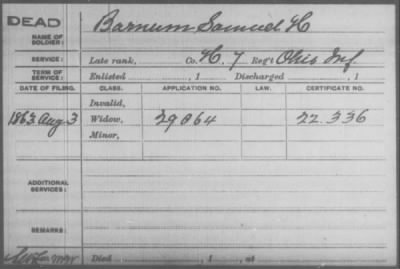 DEAD
NAME OF SOLDIER: Barnum Samuel H
SERVICE: Late rank, Co. H, 7 Reg't Ohio Inf.
TERM OF SERVICE: Enlisted , 1 Discharged , 1
DATE OF FILING. CLASS. APPLICATION NO. LAW. CERTIFICATE NO.
Invalid,
1863 Aug 3 Widow, 29864 22.336
Minor,
ADDITIONAL SERVICES:
REMARKS:
Died , 1 , at